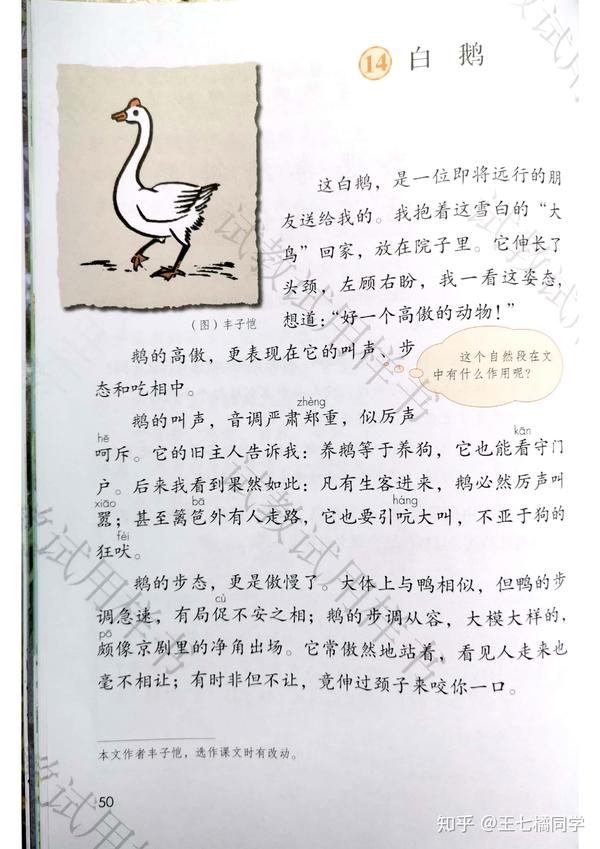 14 白鹅
这白鹅，是一位即将远行的朋
友送给我的。我抱着这雪白的“大
鸟”回家，放在院子里。它伸长了
头颈，左顾右盼，我一看这姿态，
想道：“好一个高傲的动物！”
（图）丰子恺
鹅的高傲，更表现在它的叫声、步
态和吃相中。
这个自然段在文
中有什么作用呢？
zhèng
鹅的叫声，音调严肃郑重，似厉声
hē kān
呵斥。它的旧主人告诉我：养鹅等于养狗，它也能看守门
户。后来我看到果然如此：凡有生客进来，鹅必然厉声叫
xiāo bā háng
嚣；甚至篱笆外有人走路，它也要引吭大叫，不亚于狗的
fèi
狂吠。
鹅的步态，更是傲慢了。大体上与鸭相似，但鸭的步
cù
调急速，有局促不安之相；鹅的步调从容，大模大样的，
pō
颇像京剧里的净角出场。它常傲然地站着，看见人走来也
毫不相让；有时非但不让，竟伸过颈子来咬你一口。
本文作者丰子恺，选作课文时有改动。
50
试教试用样书
试教试用样书
试教试用样书
知乎 @王七橘同学